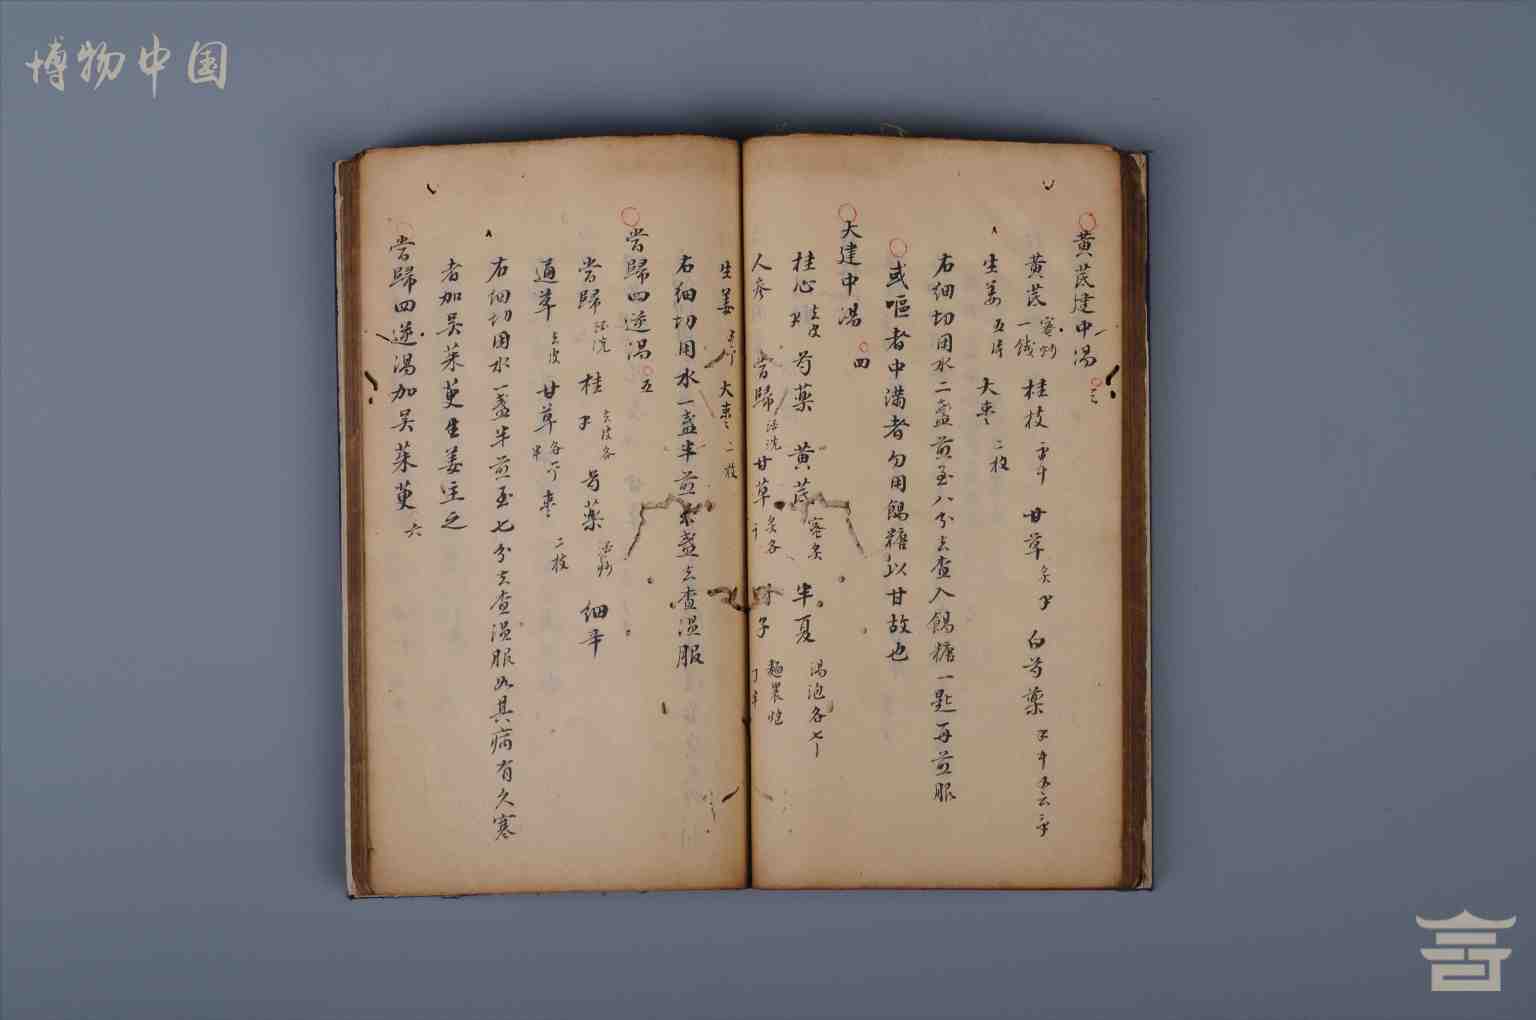 博物中国
黄芪建中湯 三
黄芪 蜜炒 一錢 桂枝 甘草 炙 白芍藥
生姜 五片 大棗 二枚
右細切用水二盞煎至八分去查入餳糖一匙再煎服
或嘔者中滿者勿用餳糖以甘故也
大建中湯 四
桂心 去皮 芍藥 黄芪 蜜炙 半夏 湯泡各七
人參 當歸 酒洗 甘草 炙各 附子 麵裹炮
生姜 大棗 二枚
右細切用水一盞半煎 盞去查温服
當歸四逆湯 五
當歸 酒洗 桂 去皮各 芍藥 酒炒 細辛
通草 去皮 甘草 各 半 棗 二枚
右細切用水一盞半煎至七分去查温服如其病有久寒
者加吴茱萸生姜主之
當歸四逆湯加吴茱萸 六